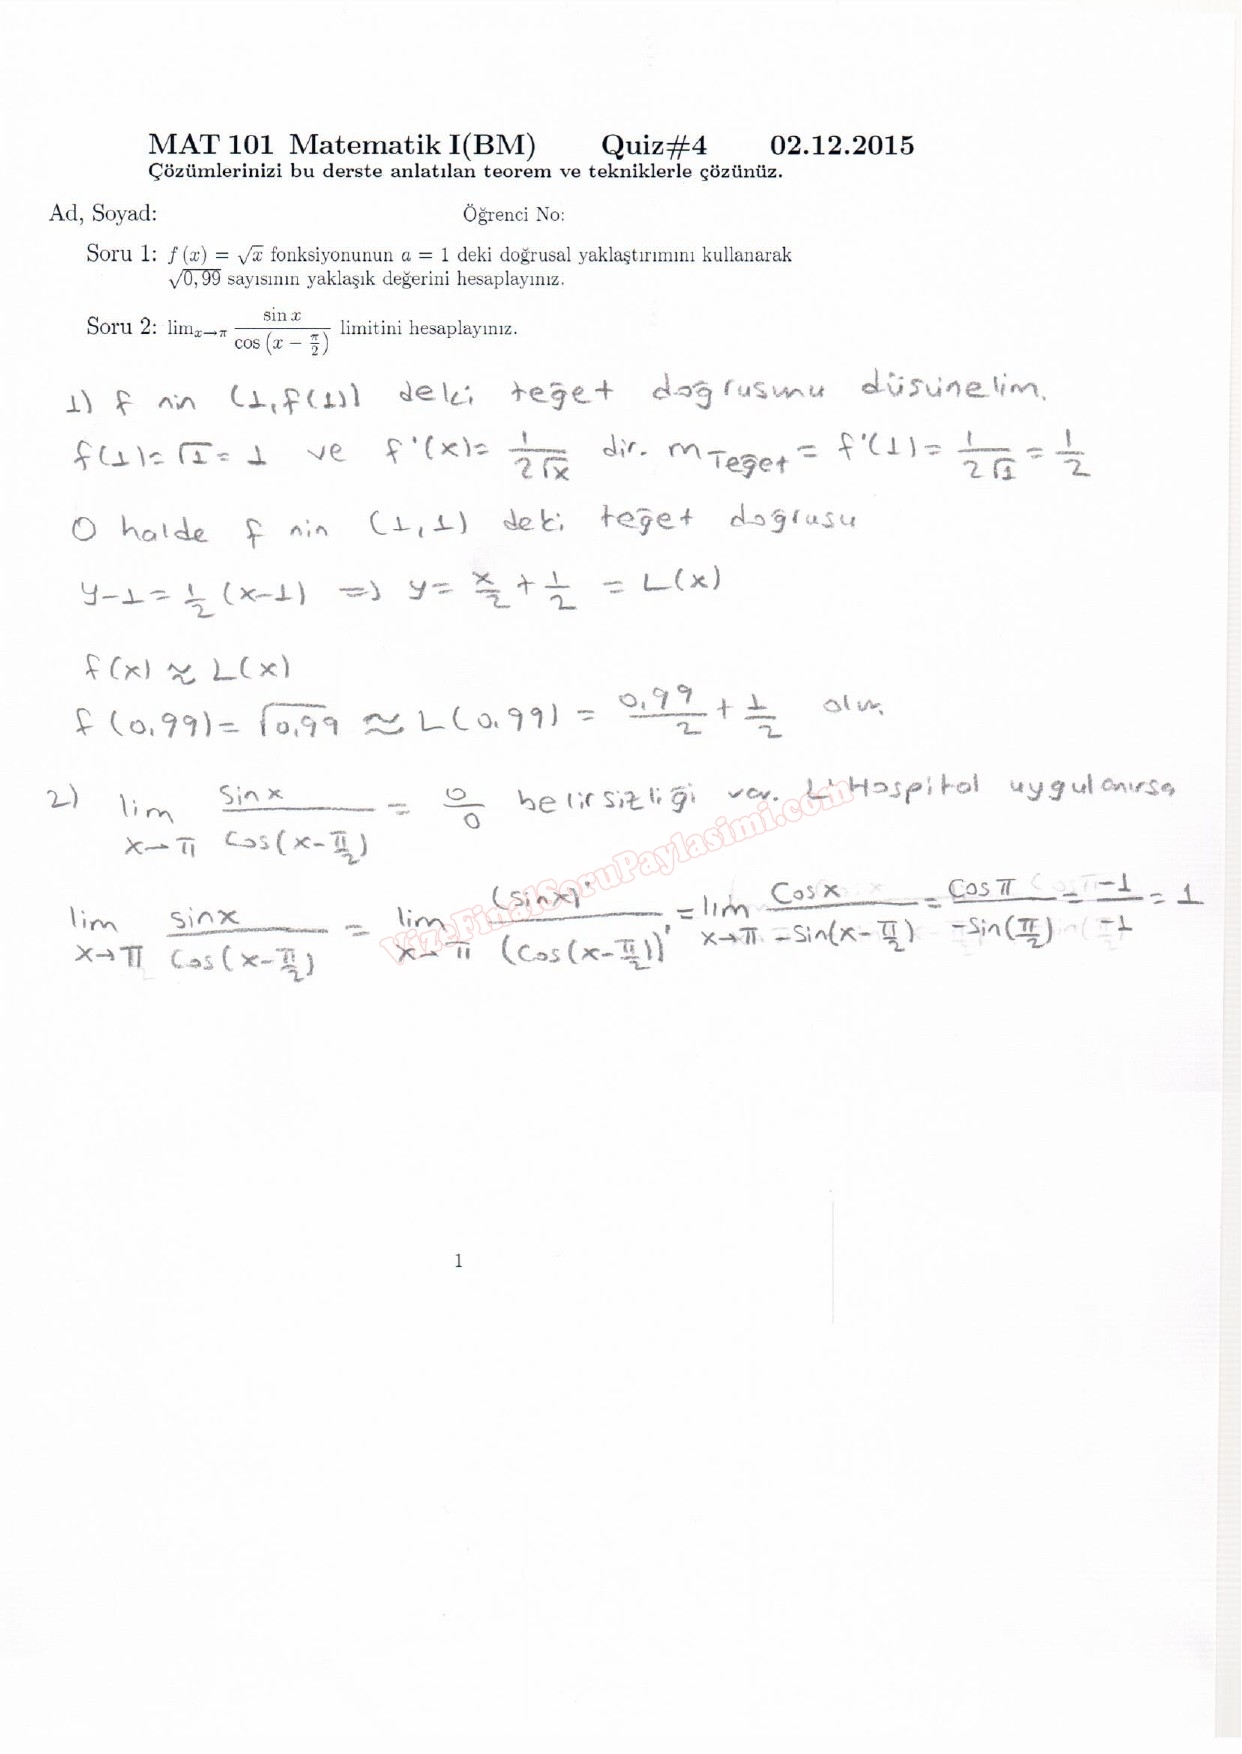 MAT 101 Matematik I(BM) Quiz#4 02.12.2015
Çözümlerinizi bu derste anlatılan teorem ve tekniklerle çözünüz.
Ad, Soyad: Öğrenci No:
Soru 1: f (x) = √x fonksiyonunun a = 1 deki doğrusal yaklaştırımını kullanarak
√0,99 sayısının yaklaşık değerini hesaplayınız.
Soru 2: lim x→π sin x / cos (x − π/2) limitini hesaplayınız.
1) f nin (1, f(1)) deki teğet doğrusunu düşünelim.
f(1) = √1 = 1 ve f'(x) = 1/(2√x) dir. m Teğet = f'(1) = 1/(2√1) = 1/2
O halde f nin (1,1) deki teğet doğrusu
y-1 = 1/2 (x-1) ⇒ y = x/2 + 1/2 = L(x)
f(x) ≈ L(x)
f(0,99) = √0,99 ≈ L(0,99) = 0,99/2 + 1/2 olur.
2) lim x→π Sin x / Cos(x-π/2) = 0/0 belirsizliği var. L'Hospitol uygulanırsa
lim x→π sinx / Cos(x-π/2) = lim x→π (sinx)' / (Cos(x-π/2))' = lim x→π Cosx / -Sin(x-π/2) = Cos π / -Sin(π/2) = -1/-1 = 1
VizeFinalSoruPaylasimi.com
1